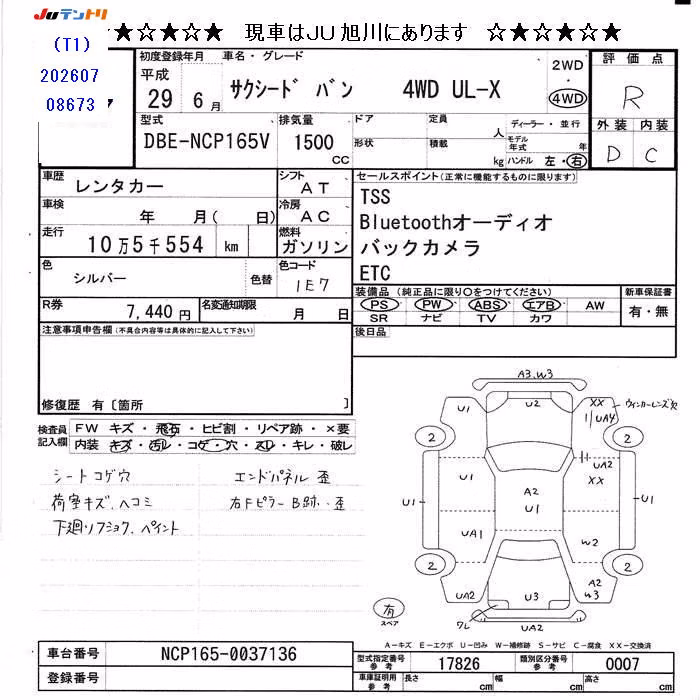 JUテントリ
★☆★☆★ 現車はJU旭川にあります ☆★☆★☆★
(T1)
202607
08673
初度登録年月 車名・グレード 2WD・4WD 評価点
平成 29年 6月 サクシード バン 4WD UL-X R
型式 排気量 ドア 定員 人 ディーラー・並行 外装 内装
DBE-NCP165V 1500 CC 形状 積載 kg モデル年式 年 ハンドル 左・右 D C
車歴 レンタカー シフト AT セールスポイント(正常に機能するものに限ります)
車検 年 月( 日) 冷房 AC TSS
Bluetoothオーディオ
走行 10万5千554 km 燃料 ガソリン バックカメラ
ETC
色 シルバー 色替 色コード 1E7
装備品(純正品に限り○をつけてください) 新車保証書
PS PW ABS エアB AW 有・無
SR ナビ TV カワ
R券 7,440円 名変通知期限 月 日
後日品
注意事項申告欄(不具合内容等は具体的に記入して下さい)
修復歴 有 [箇所 ]
検査員記入欄 FW キズ・飛石・ヒビ割・リペア跡・×要
内装 キズ・汚レ・コゲ・穴・スレ・キレ・破レ
シートコゲ穴 エンドパネル歪
荷室キズ、ヘコミ 右Fピラー B跡、歪
下廻リフショク、ペイント
A3.W3
U1 U2 XX ウィンカーレンズ欠
UA4
2 2
U1 UA2
XX
U1 A2 U1
U1
UA1 W2
2 2
UA2 U3 A2
W3
ワレ UA2
有
スペア
A-キズ E-エクボ U-凹み W-補修跡 S-サビ C-腐食 XX-交換済
車台番号 NCP165-0037136 型式指定番号 参考 17826 類別区分番号 参考 0007
登録番号 車庫証明用 参考 長さ cm 幅 cm 高さ cm